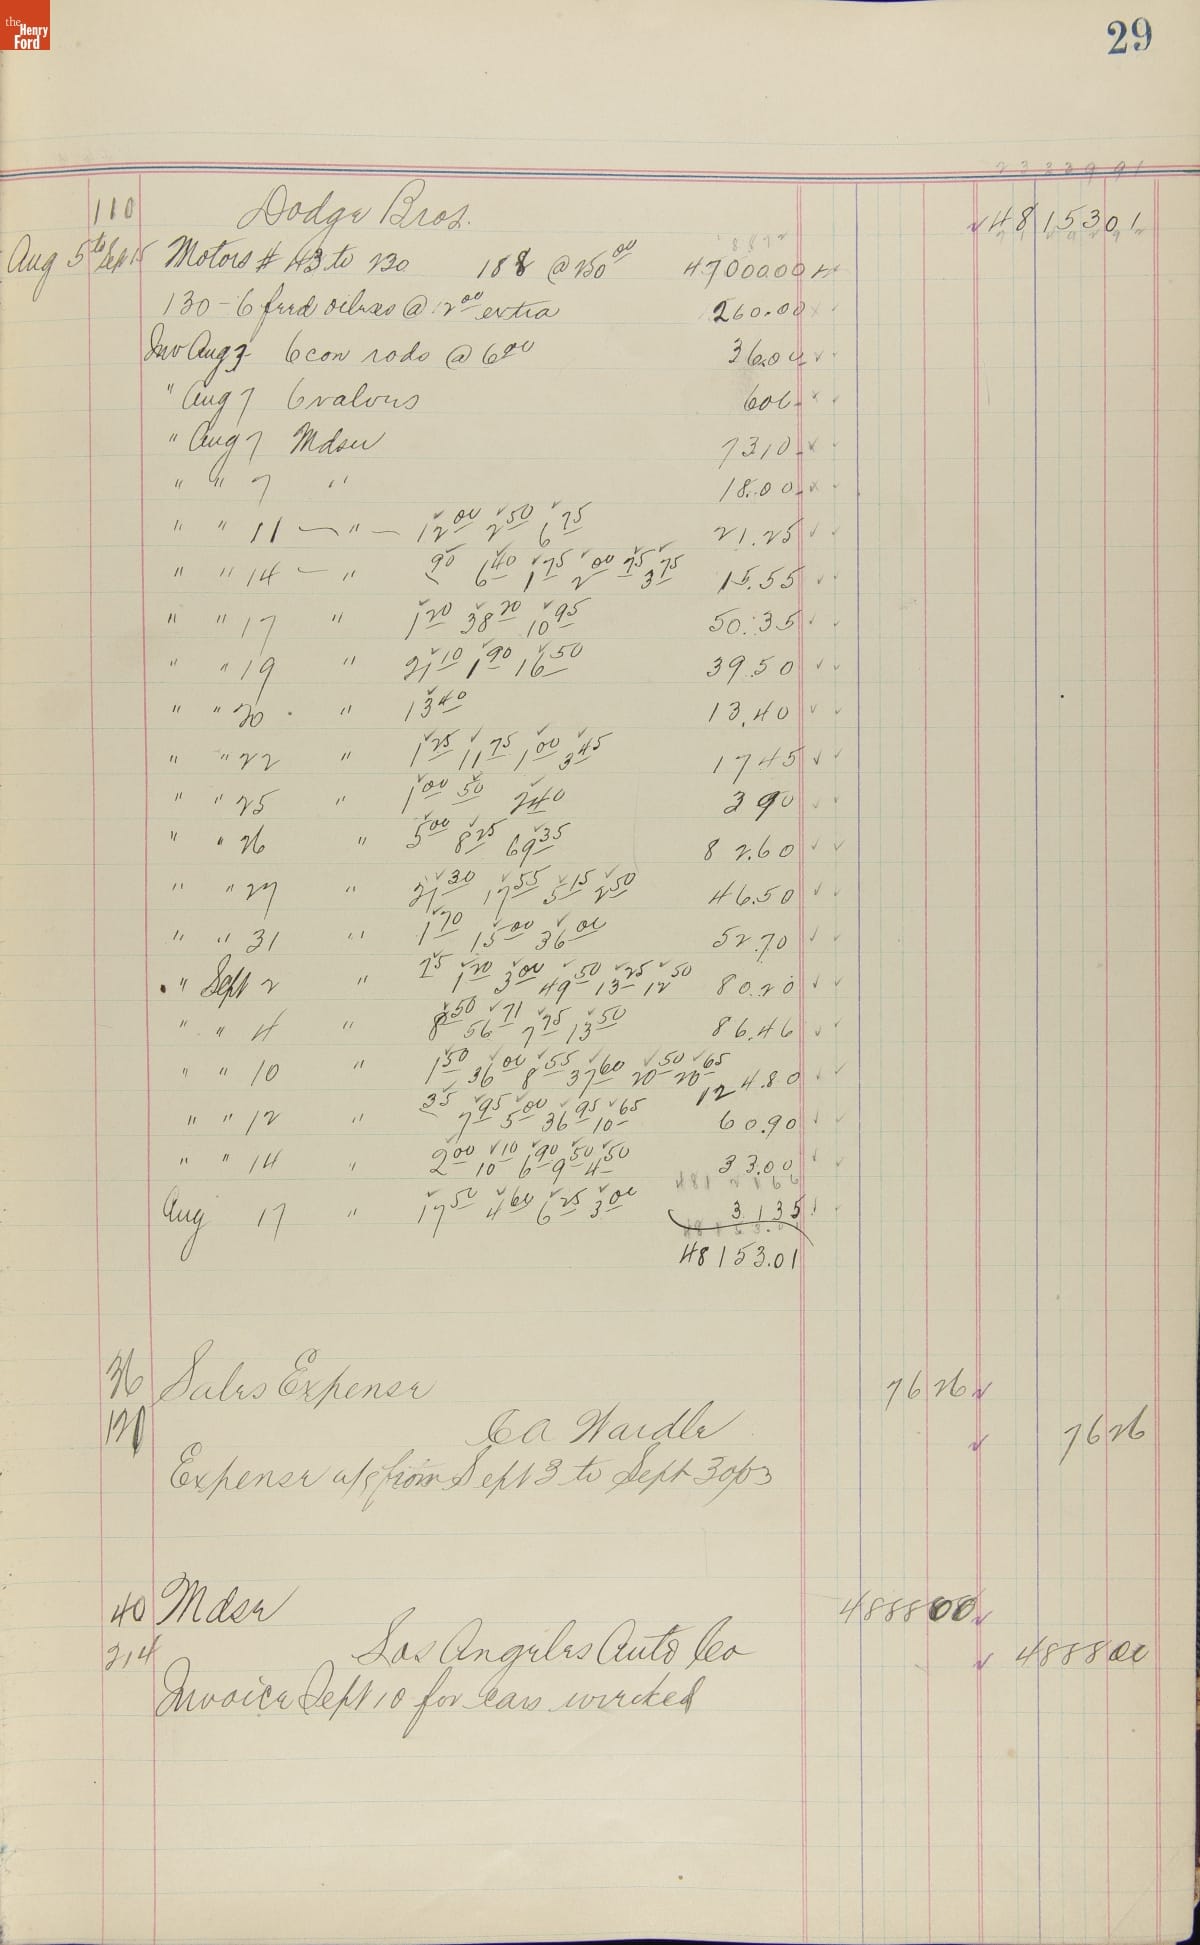 the Henry Ford
29
110 Dodge Bros. 48153 01
Aug 5 to Sept 15 Motors # 43 to 230 188 @ 250 00 47000.00
130 - 6 feed oilers @ 2 00 extra 260.00
Inv Aug 3 6 con rods @ 6 00 36.00
" Aug 7 6 valves 600
" Aug 7 Mdse 7310
" " 7 " 18.00
" " 11 — " — 12 00 2 50 6 75 21.25
" " 14 — " 90 6 40 1 75 2 00 75 3 75 15.55
" " 17 " 1 20 38 20 10 95 50.35
" " 19 " 21 10 1 90 16 50 39.50
" " 20 " 13 40 13.40
" " 22 " 1 25 11 75 1 00 3 45 1745
" " 25 " 1 00 50 2 40 3 90
" " 26 " 5 00 8 25 69 35 82.60
" " 27 " 21 30 17 55 5 15 2 50 46.50
" " 31 " 1 70 15 00 36 00 52.70
" Sept 2 " 75 1 20 3 00 49 50 13 25 12 50 80.20
" " 4 " 8 50 56 71 7 75 13 50 86.46
" " 10 " 1 50 36 00 8 55 37 60 20 50 20 65 124.80
" " 12 " 35 7 95 5 00 36 95 10 65 60.90
" " 14 " 2 00 10 10 6 90 9 50 4 50 33.00
Aug 17 " 17 50 4 60 6 25 3 00 3135
48153.01
36 Sales Expense 76 26
120 C A Wardle 76 26
Expense a/c from Sept 3 to Sept 30/03
40 Mdse 4888 00
214 Los Angeles Auto Co 4888 00
Invoice Sept 10 for cars wrecked